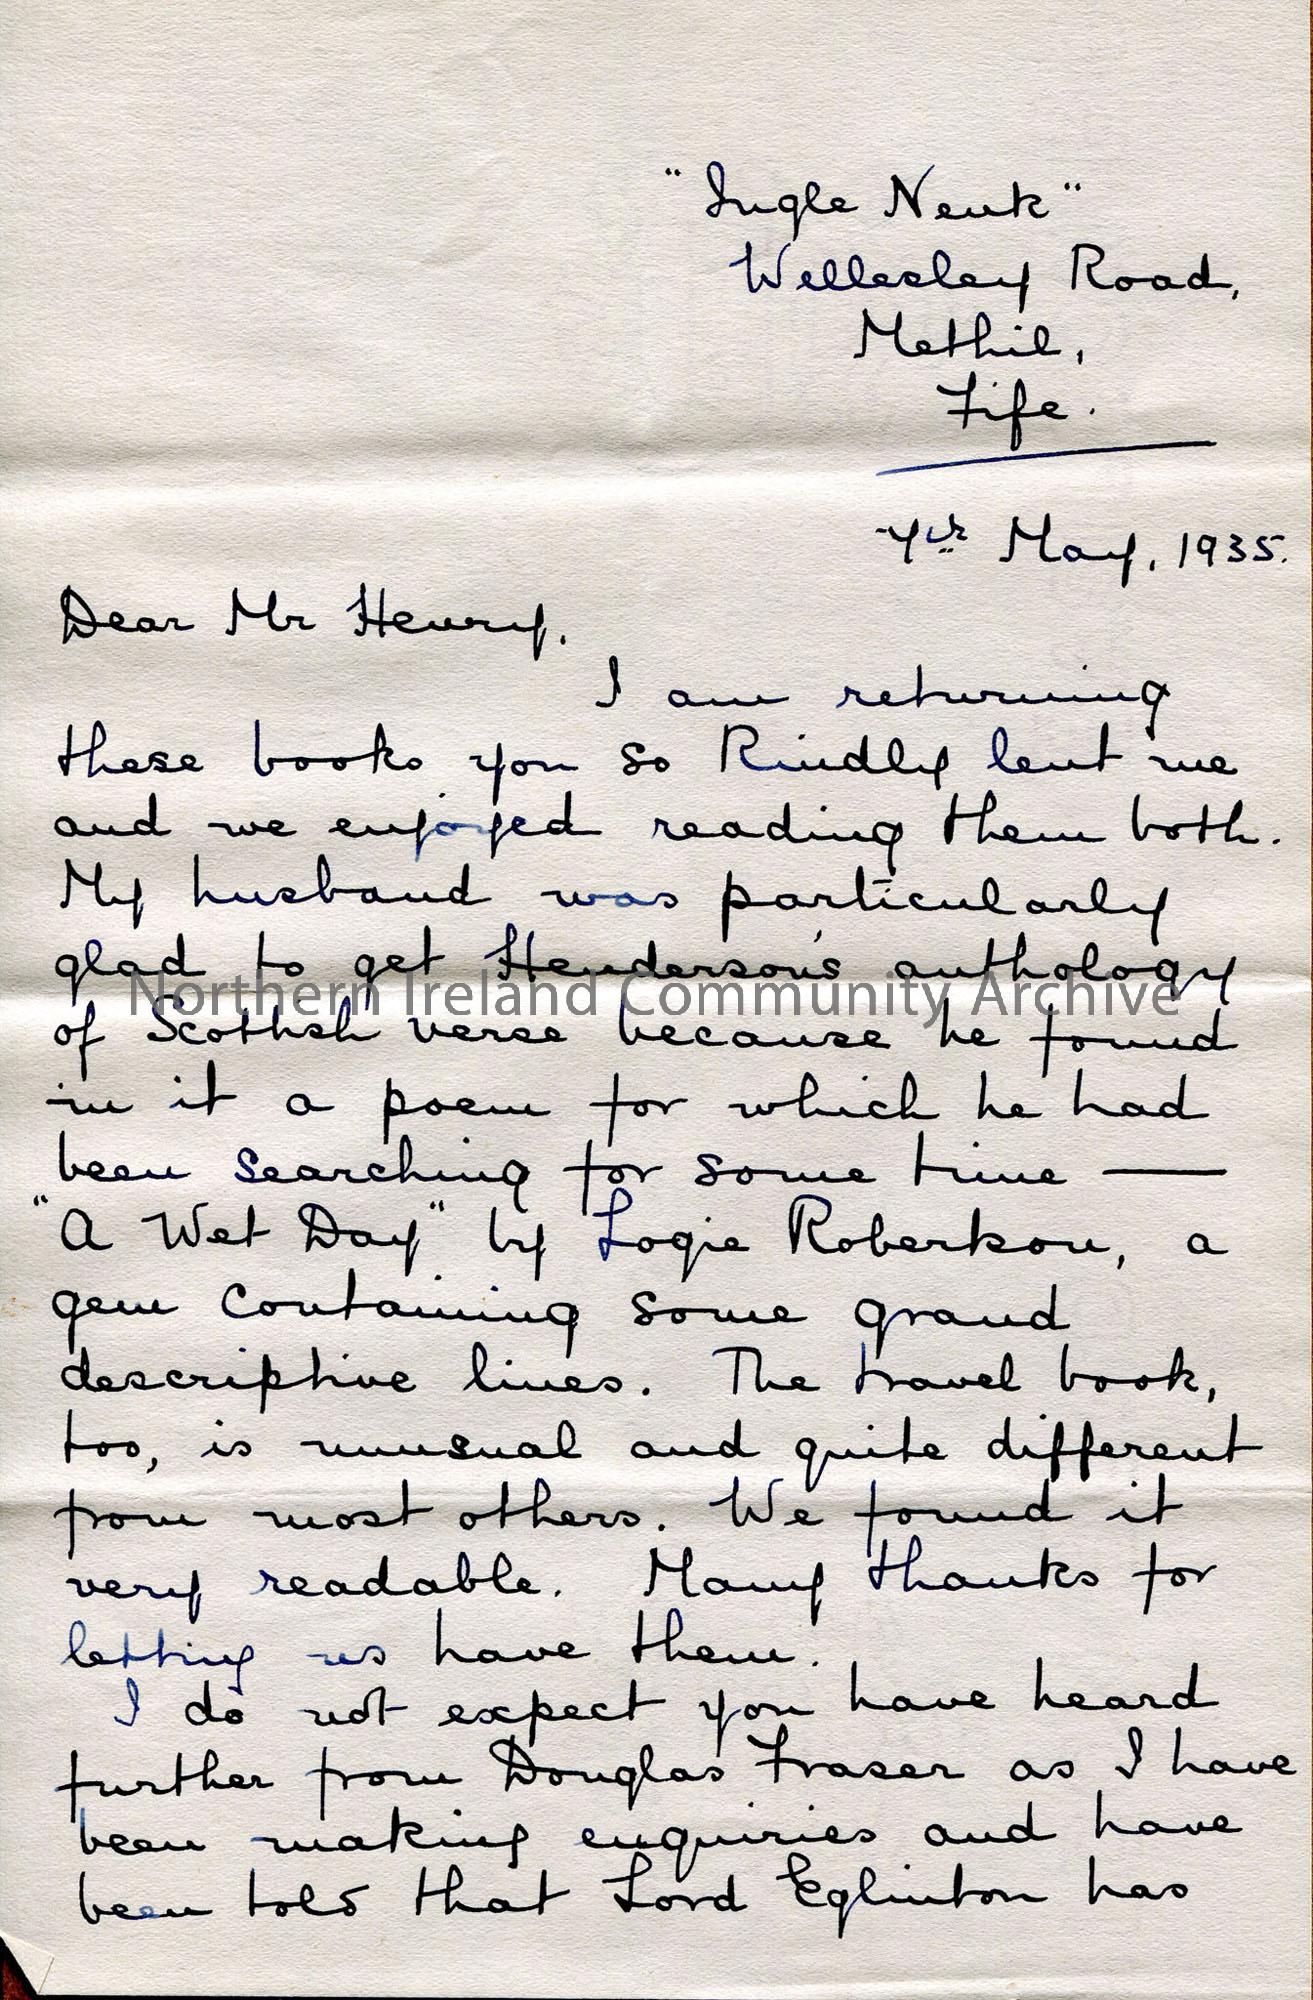 "Ingle Neuk"
Wellesley Road,
Methil,
Fife.
7th May, 1935.
Dear Mr Henry,
I am returning
these books you so kindly lent me
and we enjoyed reading them both.
My husband was particularly
glad to get Henderson's anthology
Northern Ireland Community Archive
of Scottish verse because he found
in it a poem for which he had
been searching for some time —
"A Wet Day" by Logie Robertson, a
gem containing some grand
descriptive lines. The travel book,
too, is unusual and quite different
from most others. We found it
very readable. Many thanks for
letting us have them.
I do not expect you have heard
further from Douglas Fraser as I have
been making enquiries and have
been told that Lord Eglinton has